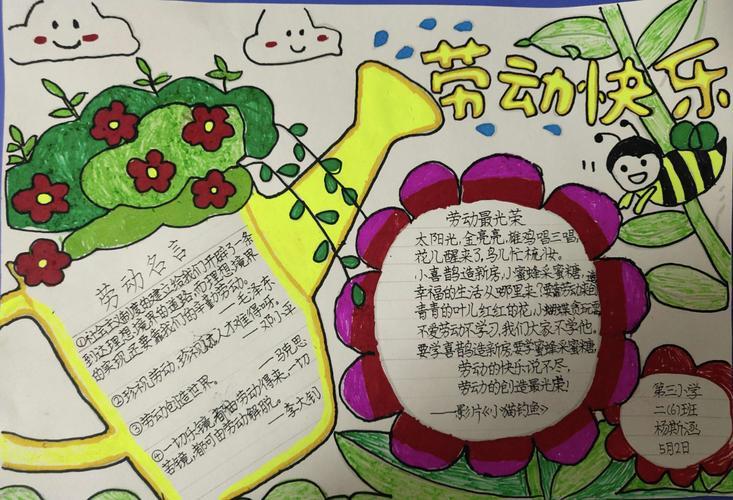 劳动快乐
劳动名言
①社会主义制度的建立给我们开辟了一条
到达理想境界的道路,而理想境界
的实现还要靠我们的辛勤劳动。——毛泽东
②珍视劳动,珍视人才,人才难得呀。
——邓小平
③劳动创造世界。
——马克思
④一切乐境,都由劳动得来,一切
苦境,都可由劳动解脱。——李大钊
劳动最光荣
太阳光,金亮亮,雄鸡唱三唱,
花儿醒来了,鸟儿忙梳妆。
小喜鹊造新房,小蜜蜂采蜜糖,
幸福的生活从哪里来?要靠劳动来创造
青青的叶儿红红的花,小蝴蝶贪玩耍
不爱劳动不学习,我们大家不学他。
要学喜鹊造新房,要学蜜蜂采蜜糖,
劳动的快乐说不尽,
劳动的创造最光荣!
——影片《小猫钓鱼》
第三小学
二(6)班
杨斯涵
5月2日